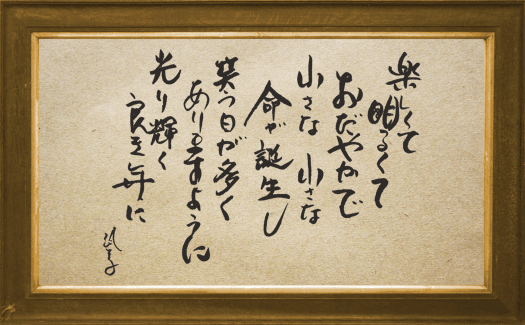 楽しくて
明るくて
おだやかで
小さな 小さな
命が誕生し
笑う日が多く
ありますように
光り輝く
良き年に